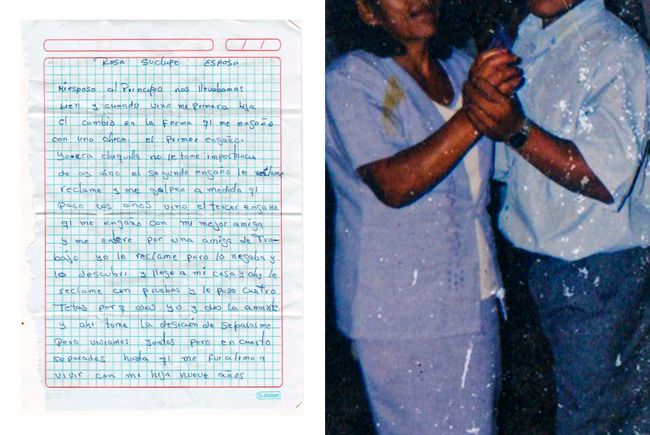 Rosa Suclupe Esposa
Miesposo al Principio nos llevabamos
bien y cuando vino mi primera hija
el cambio en la forma q1 me engaño
con una chica. el Primer engaño.
Yo era chiquilla no le tome importancia
de ay vino el segundo engaño le
reclame y me golpeo a medida q1
paso los años vino el tercer engaño
q1 me engaño con mi mejor amiga
y me entere por una amiga de Tra-
bajo yo le reclame pero lo negaba y
lo descubri y llege a mi casa y ahi le
reclame con pruebas y le puse cuatro
Tetas porq dos yo y dos la amante
y ahi tome la desición de separarme
pero viviamos juntos pero en cuarto
separados hasta q1 me fui a lima a
vivir con mi hija nueve años
Justus